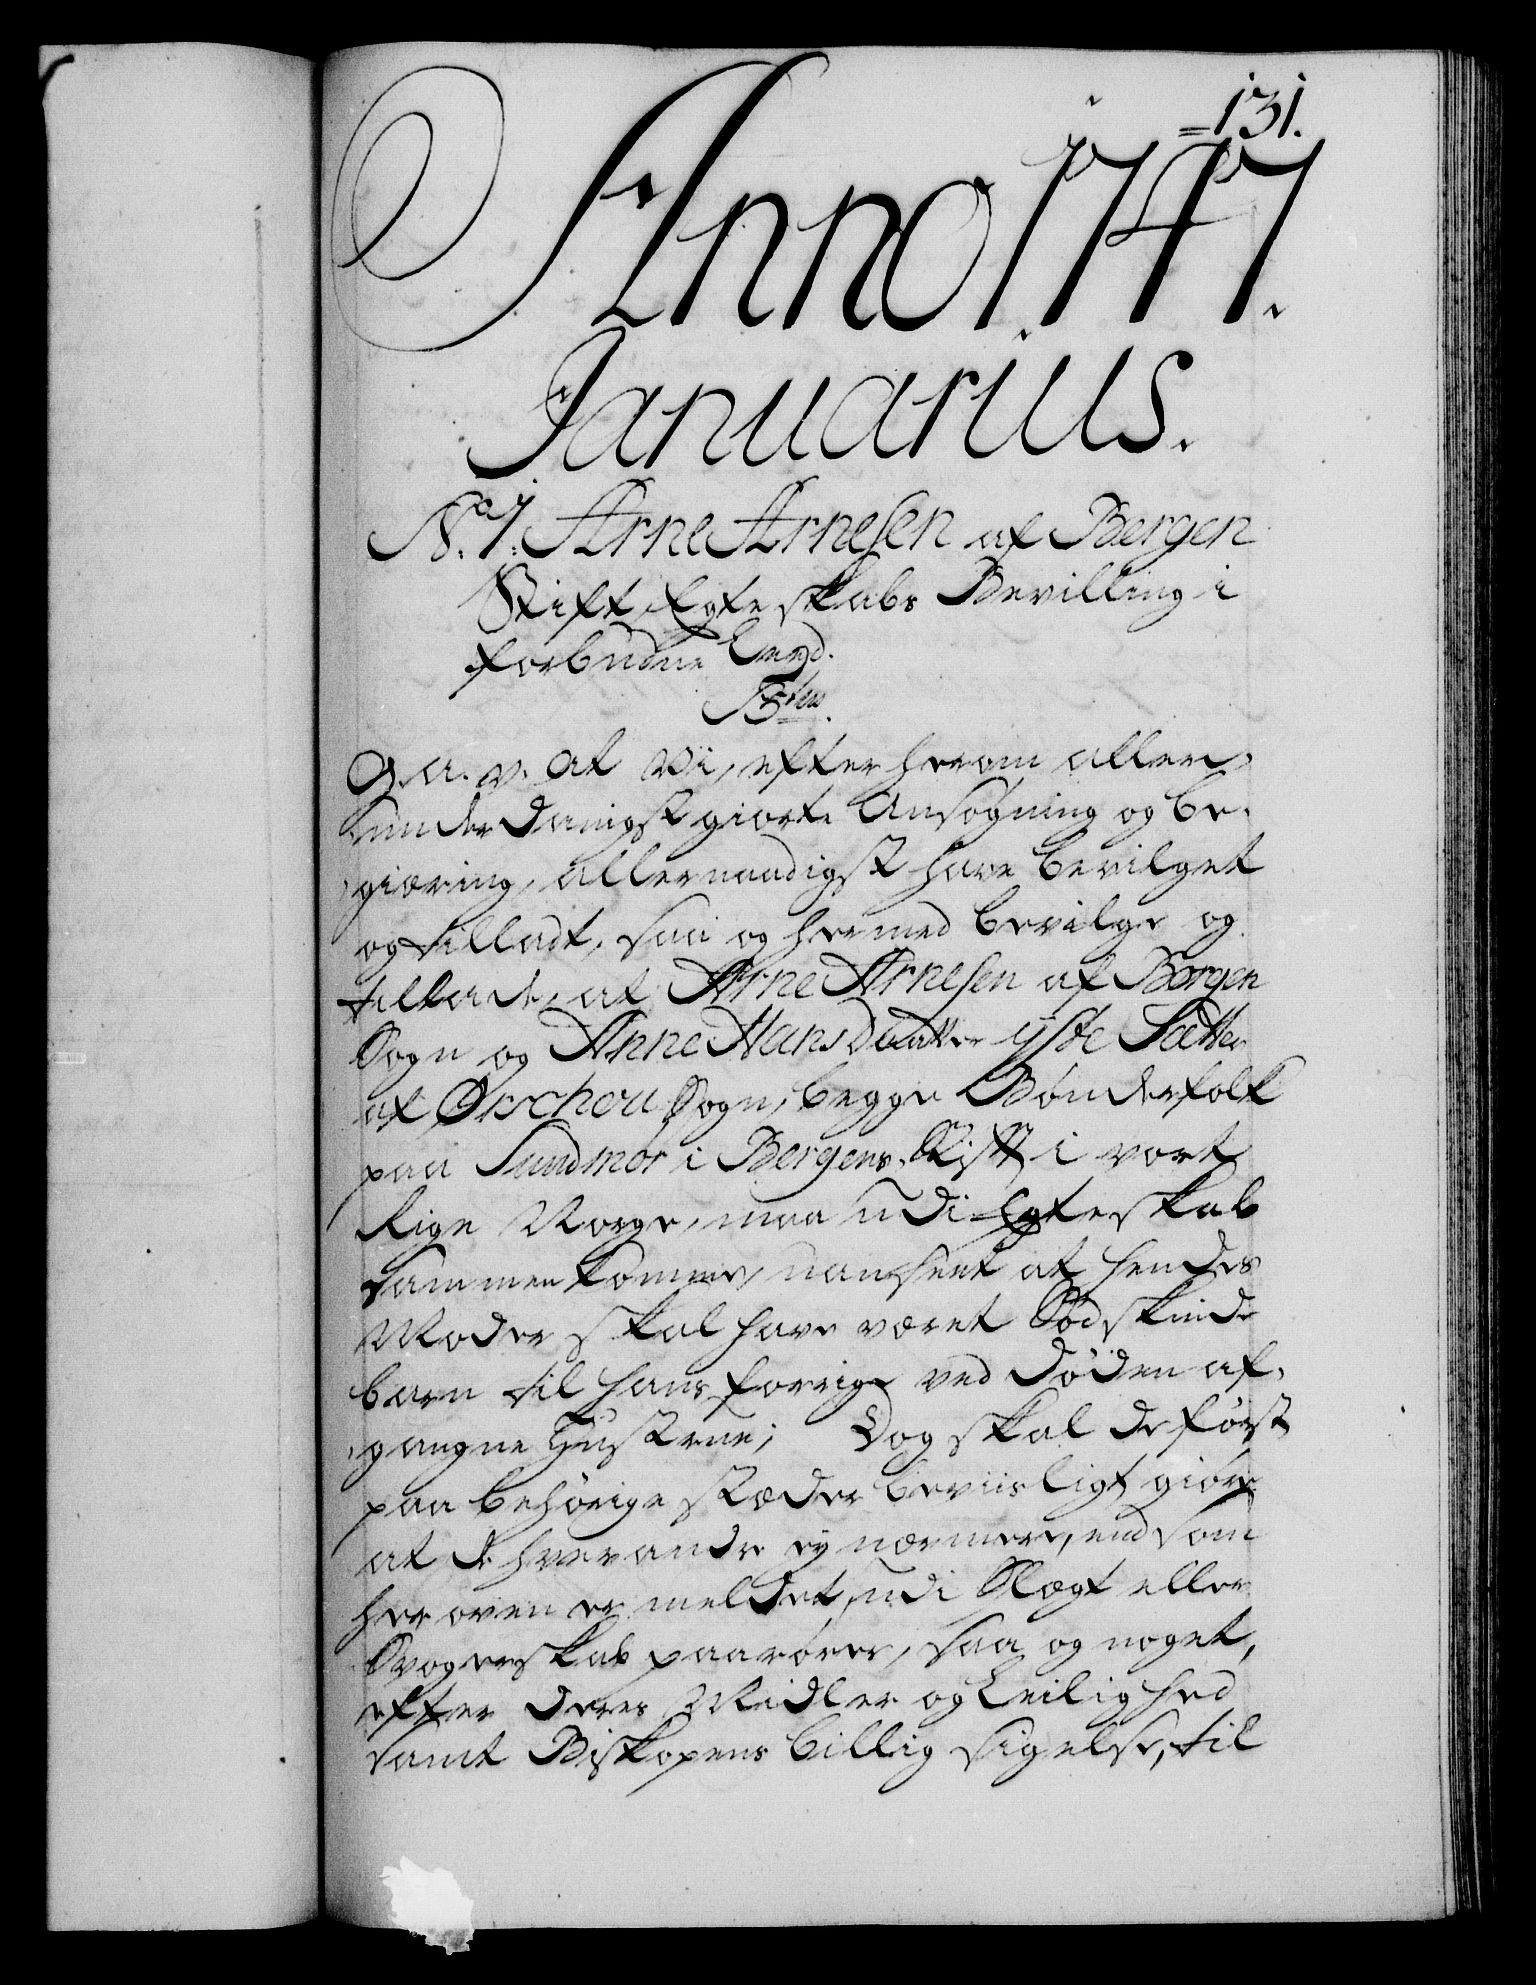 =131.
Anno 1747.
Januarius.
N.º 1. Arne Arnesen af Bergen
Stift, Egteskabs Bevilling i
forbudne Leed.
G. A. V. At Vi, efter herom aller-
underdanigst giorte Ansøgning og be-
giæring, allernaadigst have bevilget
og tilladt, saa og hermed bevilge og
tillade, at Arne Arnesen af Borgen
Sogn og Anne Hansdaatter yste Sætter
af Ørschou Sogn, begge Bønderfolk
paa Sundmör i Bergens Stift i vort
Rige Norge, maa udi Egteskab
sammenkomme, uanseet at hendes
Moder skal have været Sødskinde
barn til hans forrige ved døden af-
gangne Hustrue; Dog skal de først
paa behørige stæder beviisligt giøre
at de hverandre ej nærmere, end som
her oven er meldet, udi Slægt eller
Svogerskab paarører, saa og noget,
efter deres Midler og Leilighed
samt Biskopens billig sigelse, til